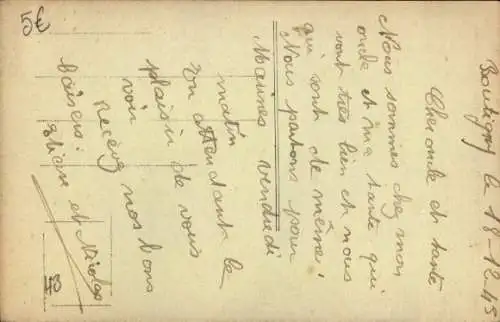 Boutigny le 18-12-45
Cher oncle et tante
Nous sommes chez mon
oncle et ma tante qui
vont très bien et nous
qui sont de même.
Nous partons pour
Marines vendredi
matin
En attendant le
plaisir de vous
voir
Recevez nos bons
baisers.
et Nicolas
5€